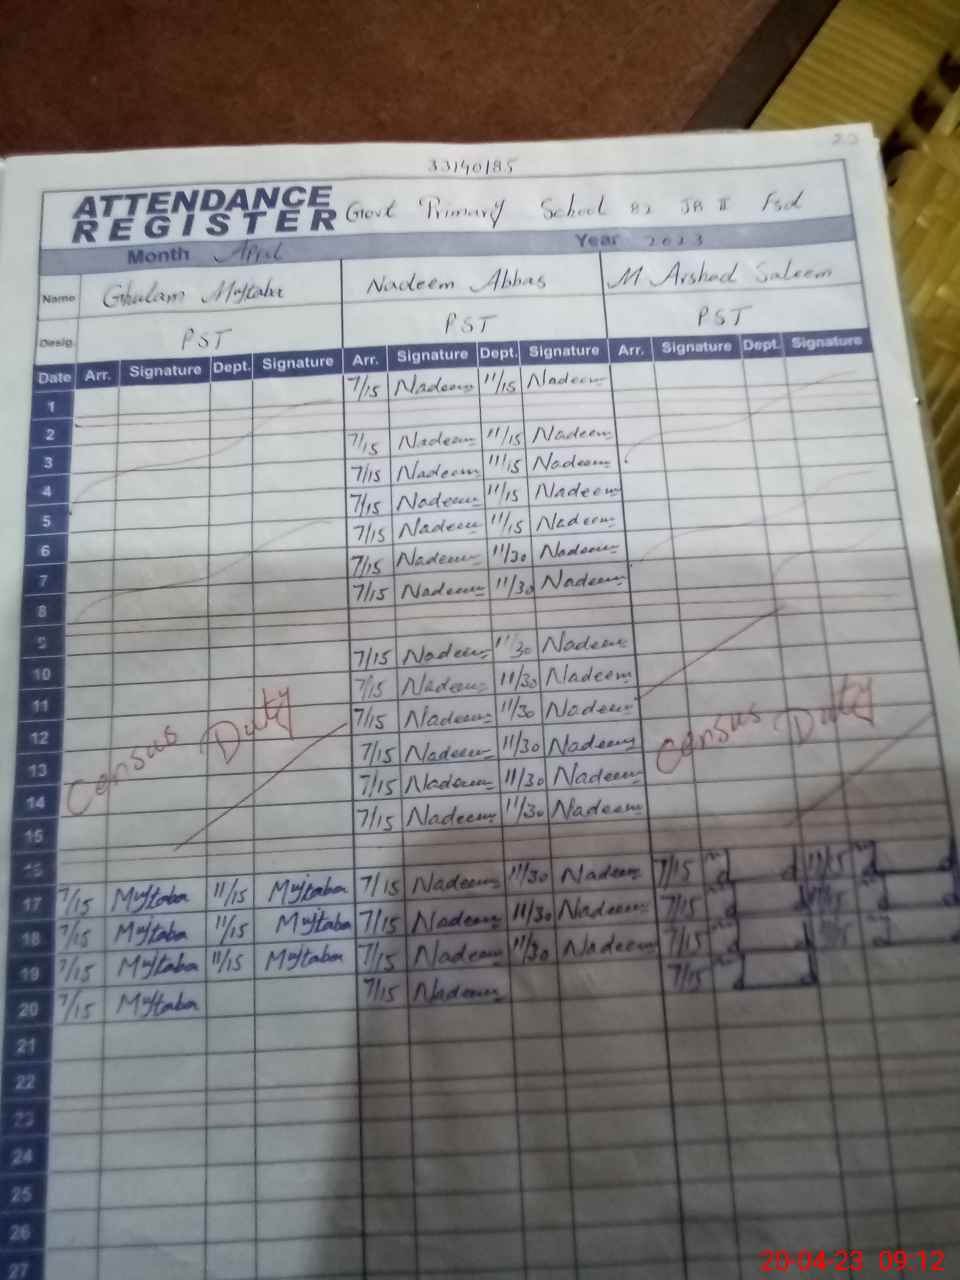 33140185
ATTENDANCE REGISTER Govt Primary School 82 JB II Fsd
Month April Year 2023
Name Ghulam Mujtaba Nadeem Abbas M Arshad Saleem
Desig. PST PST PST
Date Arr. Signature Dept. Signature Arr. Signature Dept. Signature Arr. Signature Dept. Signature
1 7/15 Nadeem 11/15 Nadeem
2
3 7/15 Nadeem 11/15 Nadeem
4 7/15 Nadeem 11/15 Nadeem
5 7/15 Nadeem 11/15 Nadeem
6 7/15 Nadeem 11/15 Nadeem
7 7/15 Nadeem 11/30 Nadeem
8 7/15 Nadeem 11/30 Nadeem
9
10 7/15 Nadeem 11/30 Nadeem
11 7/15 Nadeem 11/30 Nadeem
12 7/15 Nadeem 11/30 Nadeem
Census Duty Census Duty
13 7/15 Nadeem 11/30 Nadeem
14 7/15 Nadeem 11/30 Nadeem
15 7/15 Nadeem 11/30 Nadeem
16
17 7/15 Mujtaba 11/15 Mujtaba 7/15 Nadeem 11/30 Nadeem 7/15 11/15
18 7/15 Mujtaba 11/15 Mujtaba 7/15 Nadeem 11/30 Nadeem 7/15 11/15
19 7/15 Mujtaba 11/15 Mujtaba 7/15 Nadeem 11/30 Nadeem 7/15
20 7/15 Mujtaba 7/15 Nadeem 7/15
21
22
23
24
25
26
27
20-04-23 09:12